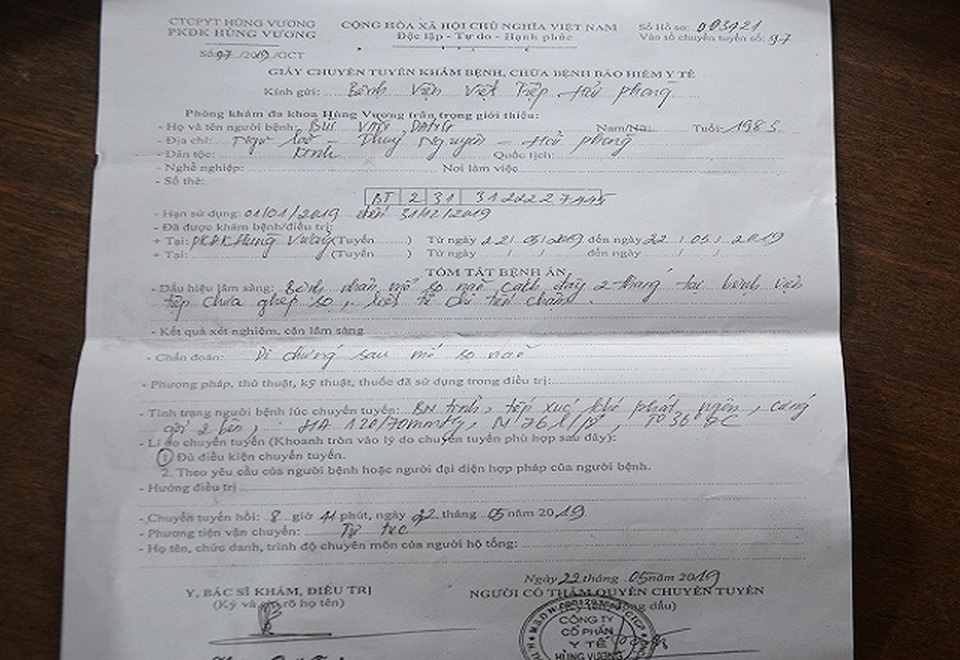 CTCPYT HÙNG VƯƠNG
PKĐK HÙNG VƯƠNG
Số: 97 /2019/GCT
CỘNG HÒA XÃ HỘI CHỦ NGHĨA VIỆT NAM
Độc lập - Tự do - Hạnh phúc
Số Hồ sơ: 003121
Vào sổ chuyển tuyến số: 97
GIẤY CHUYỂN TUYẾN KHÁM BỆNH, CHỮA BỆNH BẢO HIỂM Y TẾ
Kính gửi: Bệnh Viện Việt Tiệp Hải Phòng
Phòng khám đa khoa Hùng Vương trân trọng giới thiệu:
- Họ và tên người bệnh: Bùi Văn Nam/Nữ: Tuổi: 1985
- Địa chỉ: Thuỷ Nguyên - Hải Phòng
- Dân tộc: Kinh Quốc tịch:
- Nghề nghiệp: Nơi làm việc
- Số thẻ:
BT 2 31 31 222 27445
- Hạn sử dụng: 01/01/2019 đến 31/12/2019
- Đã được khám bệnh/điều trị:
+ Tại: PKĐK Hùng Vương (Tuyến ) Từ ngày 22/05/2019 đến ngày 22/05/2019
+ Tại: (Tuyến ) Từ ngày / / đến ngày / /
TÓM TẮT BỆNH ÁN
- Dấu hiệu lâm sàng: Bệnh nhân mổ sọ não cách đây 2 tháng tại bệnh viện
tiệp chưa ghép sọ, liệt tê chi
- Kết quả xét nghiệm, cận lâm sàng
- Chẩn đoán: Di chứng sau mổ sọ não
- Phương pháp, thủ thuật, kỹ thuật, thuốc đã sử dụng trong điều trị:
- Tình trạng người bệnh lúc chuyển tuyến: BN tỉnh, tiếp xúc khó phát ngôn, cứng
gối 2 bên, HA 120/70mmHg, N 76 l/p, T° 36°7C
- Lí do chuyển tuyến (Khoanh tròn vào lý do chuyển tuyến phù hợp sau đây):
1. Đủ điều kiện chuyển tuyến.
2. Theo yêu cầu của người bệnh hoặc người đại diện hợp pháp của người bệnh.
- Hướng điều trị
- Chuyển tuyến hồi: 8 giờ 41 phút, ngày 22 tháng 05 năm 2019
- Phương tiện vận chuyển: Tự túc
- Họ tên, chức danh, trình độ chuyên môn của người hộ tống:
Ngày 22 tháng 05 năm 2019
Y, BÁC SĨ KHÁM, ĐIỀU TRỊ
(Ký và rõ họ tên)
NGƯỜI CÓ THẨM QUYỀN CHUYỂN TUYẾN
đóng dấu)
CÔNG TY
CỔ PHẦN
Y TẾ
HÙNG VƯƠNG